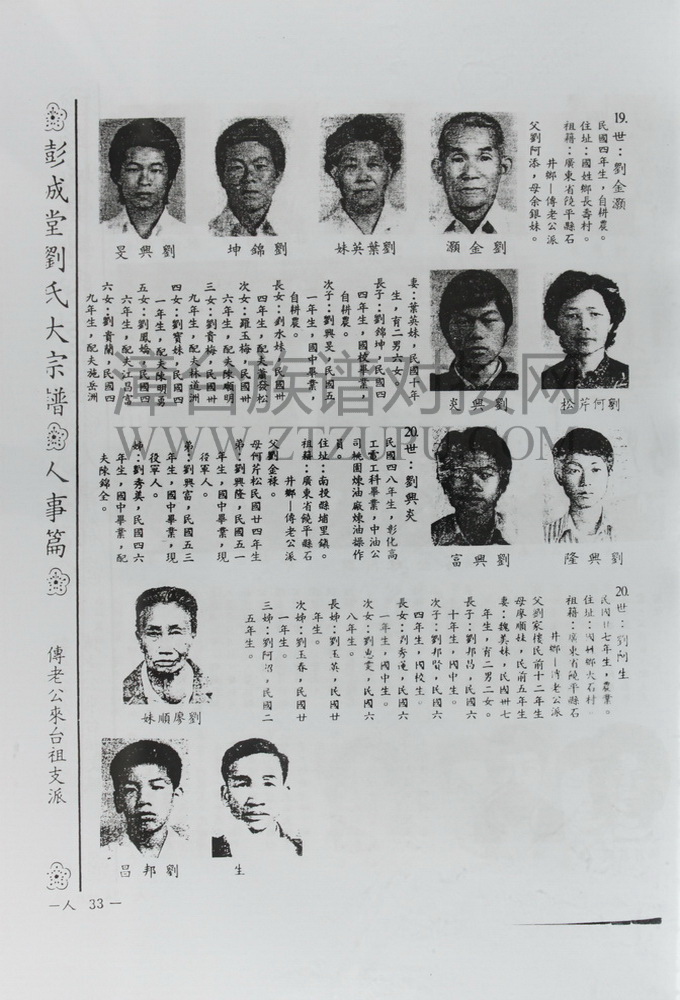 彭成堂劉氏大宗譜 人事篇 傳老公來台祖支派
19.世：劉金灝
民國四年生，自耕農。
住址：國姓鄉長壽村。
祖籍：廣東省饒平縣石
井鄉—傳老公派
父劉阿添，母余銀妹。
劉金灝
劉葉英妹
劉錦坤
劉興旻
妻：葉英妹，民國十年
生，有二男六女。
長子：劉錦坤，民國四
四年生，國校畢業，
自耕農。
次子：劉興旻，民國五
一年生，國中畢業，
自耕農。
長女：劉水妹，民國卅
四年生，配夫蕭發松
次女：羅玉梅，民國卅
六年生，配夫陳順明
三女：劉貴梅，民國卅
九年生，配夫林道洲
四女：劉寶妹，民國四
一年生，配夫陳明勇
五女：劉鳳嬌，民國四
六年生，配夫江昌富
六女：劉貴蘭，民國四
九年生，配夫施岳洲
劉何芹松
劉興炎
20.世：劉興炎
民國四八年生，彰化高
工電工科畢業，中油公
司桃園煉油廠煉油操作
員。
住址：南投縣埔里鎮。
祖籍：廣東省饒平縣石
井鄉—傳老公派
父劉金祿。
母何芹松民國廿四年生
弟：劉興隆，民國五一
年生，國中畢業，現
役軍人。
弟：劉興富，民國五三
年生，國中畢業，現
役軍人。
姊：劉秀美，民國四六
年生，國中畢業，配
夫陳錦全。
劉興隆
劉興富
20.世：劉阿生
民國廿七年生，農業。
住址：國姓鄉大石村。
祖籍：廣東省饒平縣石
井鄉—傳老公派
父劉家樓民前十二年生
母廖順妹，民前五年生
妻：魏美妹，民國卅七
年生，有二男二女。
長子：劉邦昌，民國六
十年生，國中生。
次子：劉邦賢，民國六
四年生，國校生。
長女：劉秀蓮，民國六
一年生，國中生。
次女：劉惠雯，民國六
八年生。
長姊：劉玉英，民國廿
年生。
次姊：劉玉春，民國廿
一年生。
三姊：劉阿沼，民國二
五年生。
劉廖順妹
生
劉邦昌
—人 33—
WWW.ZTZUPU.COM